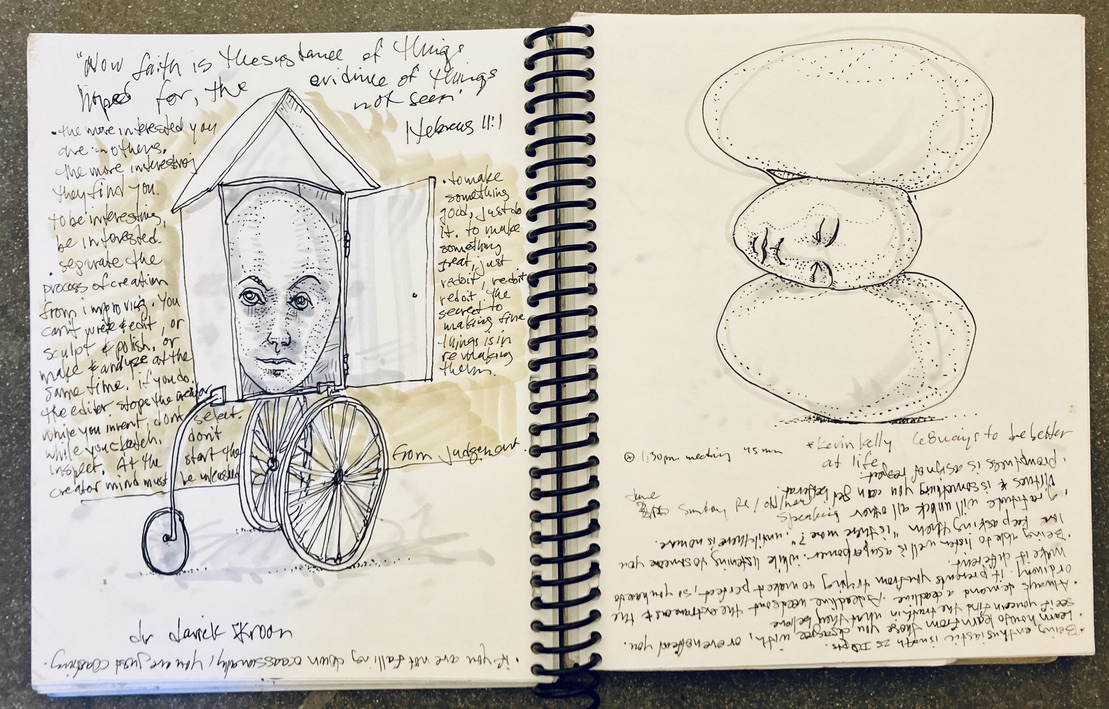 "Now faith is thesubstance of things
hoped for, the evidence of things
not seen"
Hebrews 11:1
• the more interested you
are in others,
the more interesting
they find you.
to be interesting,
be interested.
• separate the
process of creation
from improving. You
can't write & edit, or
sculpt & polish, or
make & analyze at the
same time. if you do,
the editor stops the creator
while you invent, don't select.
while you sketch, don't
inspect. At the start the
creator mind must be unleashed
from judgement.
• to make
something
good, just do
it. to make
something
great, just
redoit, redoit
redoit. the
secret to
making fine
things is in
remaking
them.
dr derrick
• if you are not falling down occassionally, you are just coasting.
*Kevin Kelly 68 ways to be better
at life
1:30pm meeting 45 min
June
Sunday
Speaking
• Promptness is a sign of respect.
• Gratitude will unlock all other
virtues & is something you can get better at.
• Being able to listen well is a superpower. while listening to someone you
love keep asking them "is there more?", until there is no more.
• Always demand a deadline. A deadline weeds out the extraneous & the
ordinary. it prevents you from trying to make it perfect, so you have to
make it different.
• Learn how to learn from those you disagree with, or even offend you.
see if you can find the truth in what they believe
• Being enthusiastic is worth 25 IQ pts.